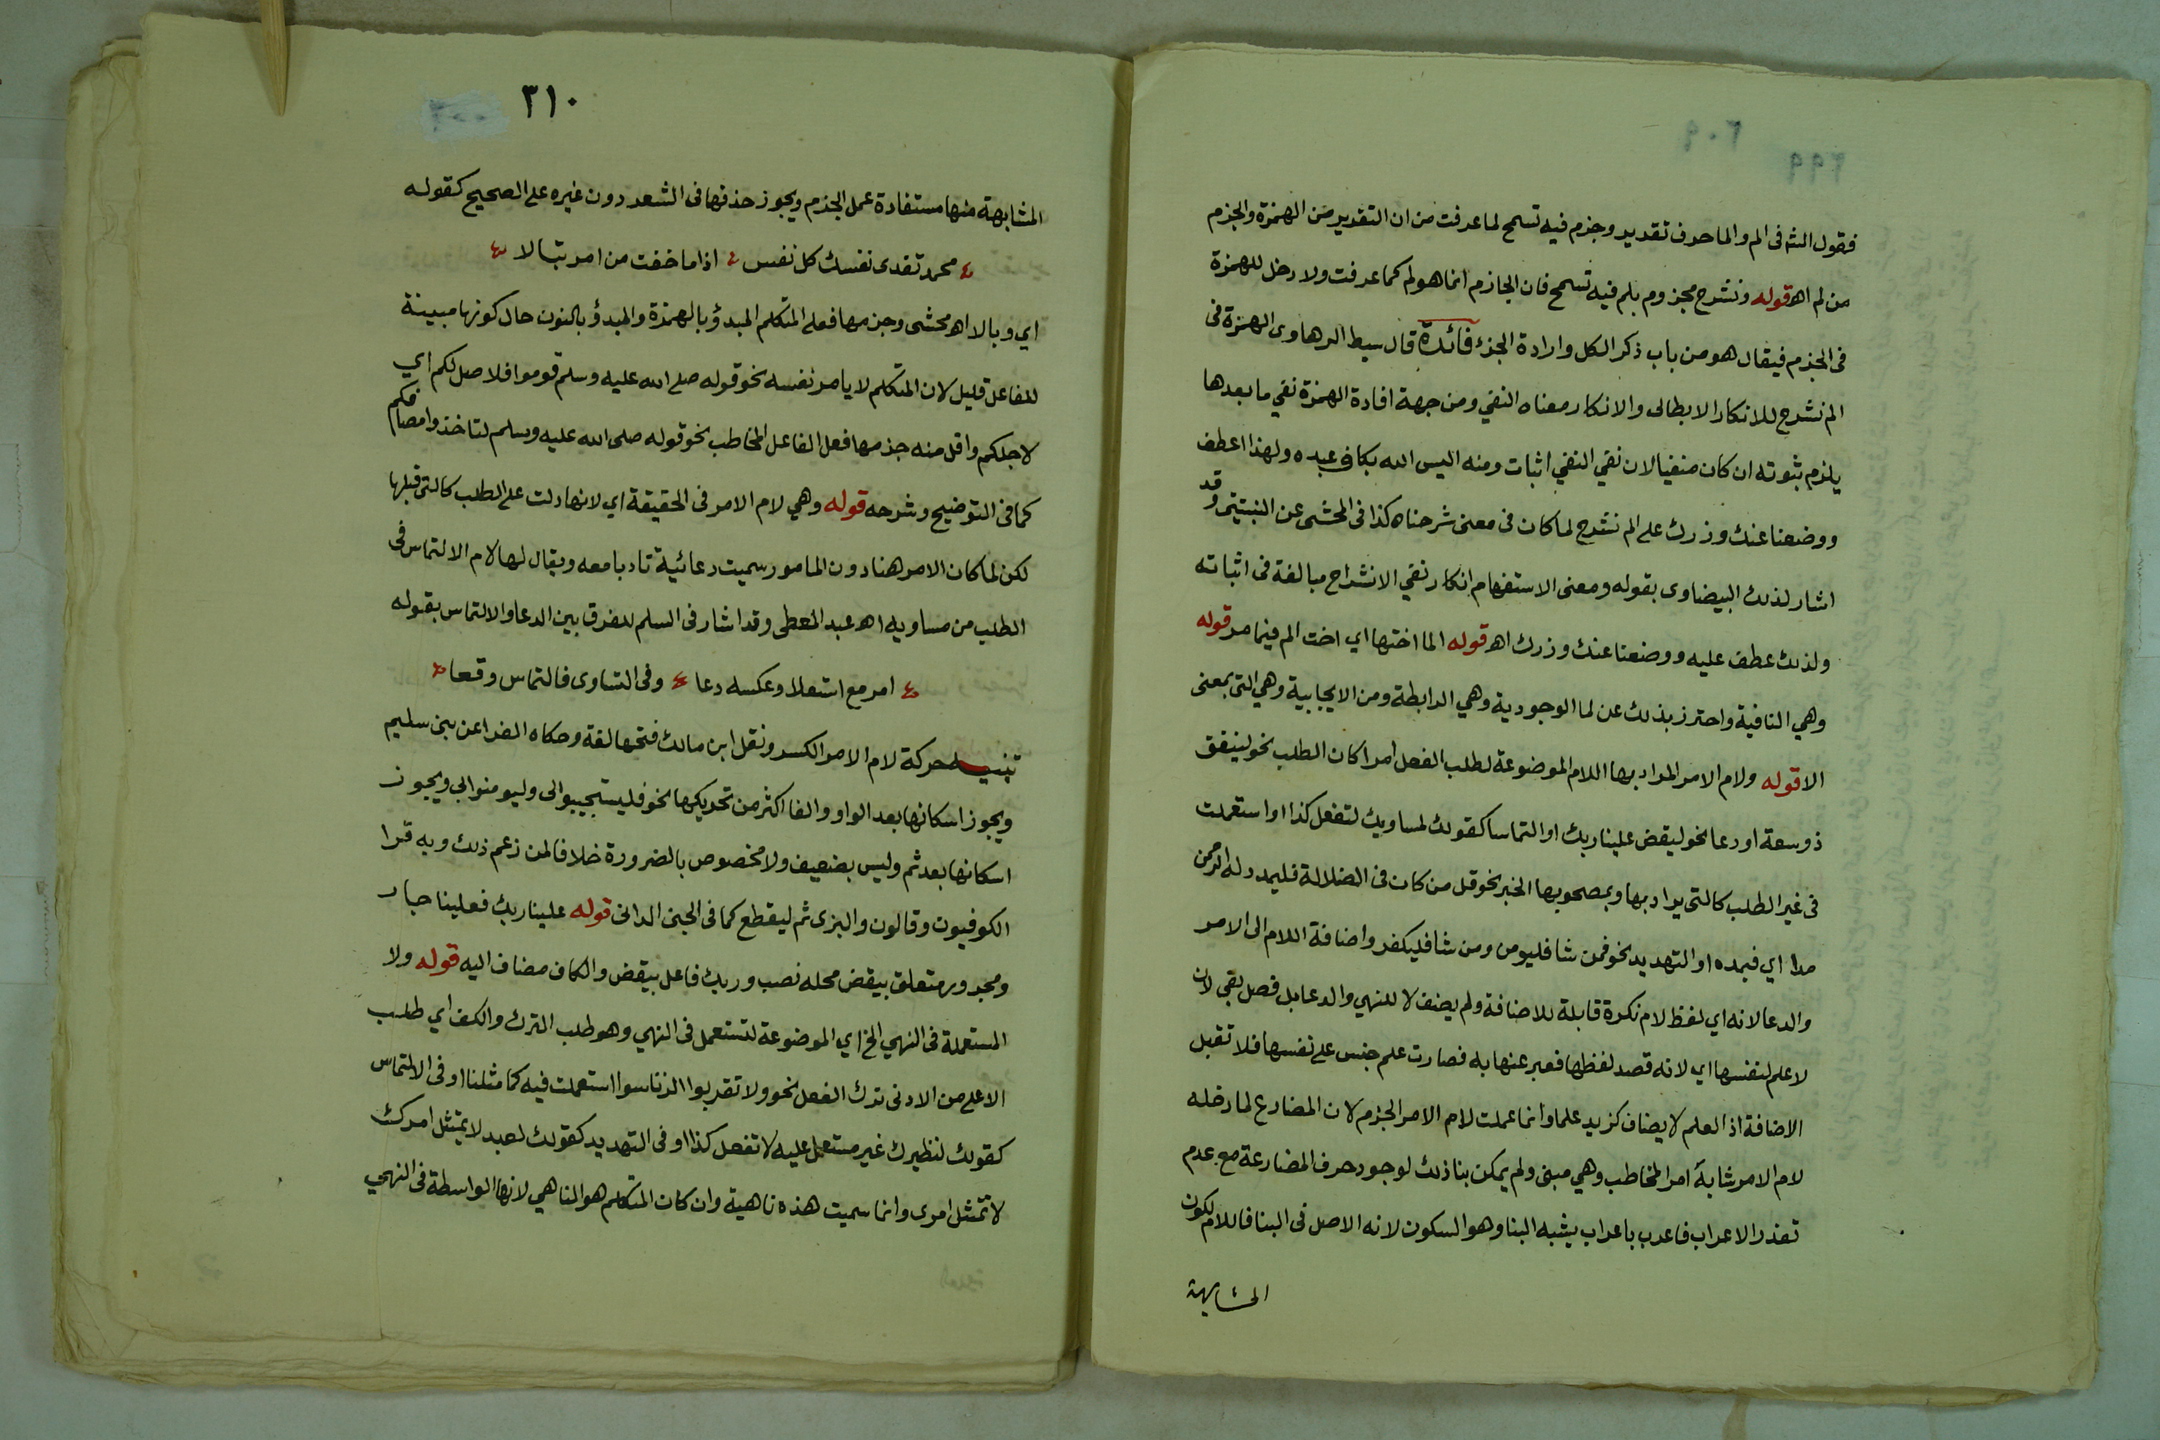 فقول الشه فى الم والما حرف تقدير وجزم فيه تسمح لما عرفت من ان التقدير من الهمزة والجزم
من لم اهـ قوله ونشرح مجزوم بلم فيه تسمح فان الجازم انما هو لم كما عرفت ولا دخل للهمزة
فى الجزم فيقال هو من باب ذكر الكل وارادة الجزء فائدة قال سبط الرهاوى الهمزة فى
الم نشرح للانكار الابطالى والانكار معناه النفي ومن جهة افادة الهمزة نفي ما بعدها
يلزم ثبوته ان كان منفيا لان نفي النفي اثبات ومنه اليس الله بكاف عبده ولهذا عطف
ووضعنا عنك وزرك على الم نشرح لما كان فى معنى شرحناه كذا فى المحشى عن النبتيتى وقد
اشار لذلك البيضاوى بقوله ومعنى الاستفهام انكار نفي الانشراح مبالغة فى اثباته
ولذلك عطف عليه ووضعنا عنك وزرك اهـ قوله الما اختها اي اخت الم فيما مر قوله
وهي النافية واحترز بذلك عن لما الوجودية وهي الرابطة ومن الايجابية وهي التى بمعنى
الا قوله ولام الامر المراد بها اللام الموضوعة لطلب الفعل امرا كان الطلب نحو لينفق
ذو سعة او دعا نحو ليقض علينا ربك او التماسا كقولك لمساويك لتفعل كذا او استعملت
فى غير الطلب كالتى يراد بها وبمصحوبها الخبر نحو قل من كان فى الضلالة فليمدد له الرحمن
مدا اي فيمده او التهديد نحو فمن شا فليومن ومن شا فليكفر واضافة اللام الى الامر
والدعا لانه اي لفظ لام نكرة قابلة للاضافة ولم يضف لا للنهي والدعا بل فصل بقي لان
لا علم لنفسها اي لانه قصد لفظها فعبر عنها به فصارت علم جنس على نفسها فلا تقبل
الاضافة اذ العلم لا يضاف كزيد علما وانما عملت لام الامر الجزم لان المضارع لما دخله
لام الامر شابه امر المخاطب وهي مبنى ولم يمكن بنا ذلك لوجود حرف المضارعة مع عدم
تعذر الاعراب فاعرب باعراب يشبه البنا وهو السكون لانه الاصل فى البنا فاللام لكون
المشابهة
٣١٠
المشابهة منها مستفادة عمل الجزم ويجوز حذفها فى الشعر دون غيره على الصحيح كقوله
محمد تفدى نفسك كل نفس اذا ما خفت من امر تبالا
اي وبالا اهـ محشى وجزمها فعلى المتكلم المبدؤ بالهمزة والمبدؤ بالنون حال كونها مبينة
للفاعل قليل لان المتكلم لا يامر نفسه نحو قوله صلى الله عليه وسلم قوموا فلاصل لكم اي
لاجلكم واقل منه جزمها فعل الفاعل المخاطب نحو قوله صلى الله عليه وسلم لتاخذوا مصافكم
كما فى التوضيح وشرحه قوله وهي لام الامر فى الحقيقة اي لانها دلت على الطلب كالتى قبلها
لكن لما كان الامر هنا دون المامور سميت دعائية تادبا معه ويقال لها لام الالتماس فى
الطلب من مساويه اهـ عبد المعطى وقد اشار فى السلم للفرق بين الدعا والالتماس بقوله
امر مع استعلا وعكسه دعا وفى التساوى فالتماس وقعا
تنبيه حركة لام الامر الكسر ونقل ابن مالك فتحها لغة وحكاه الفرا عن بنى سليم
ويجوز اسكانها بعد الواو والفا اكثر من تحريكها نحو فليستجيبوا لى وليومنوا بى ويجوز
اسكانها بعد ثم وليس بضعيف ولا مخصوص بالضرورة خلافا لمن زعم ذلك وبه قرا
الكوفيون وقالون والبزى ثم ليقطع كما فى الجنى الدانى قوله علينا ربك فعلينا جار
ومجرور متعلق بيقض محله نصب وربك فاعل بيقض والكاف مضاف اليه قوله ولا
المستعملة فى النهي الخ اي الموضوعة لتستعمل فى النهي وهو طلب الترك والكف اي طلب
الاعلى من الادنى ترك الفعل نحو ولا تقربوا الزنا سوا استعملت فيه كما مثلنا او فى الالتماس
كقولك لنظيرك غير مستعمل عليه لا تفعل كذا او فى التهديد كقولك لعبد لا يمتثل امرك
لا تمتثل امرى وانما سميت هذه ناهية وان كان المتكلم هو الناهي لانها الواسطة فى النهي